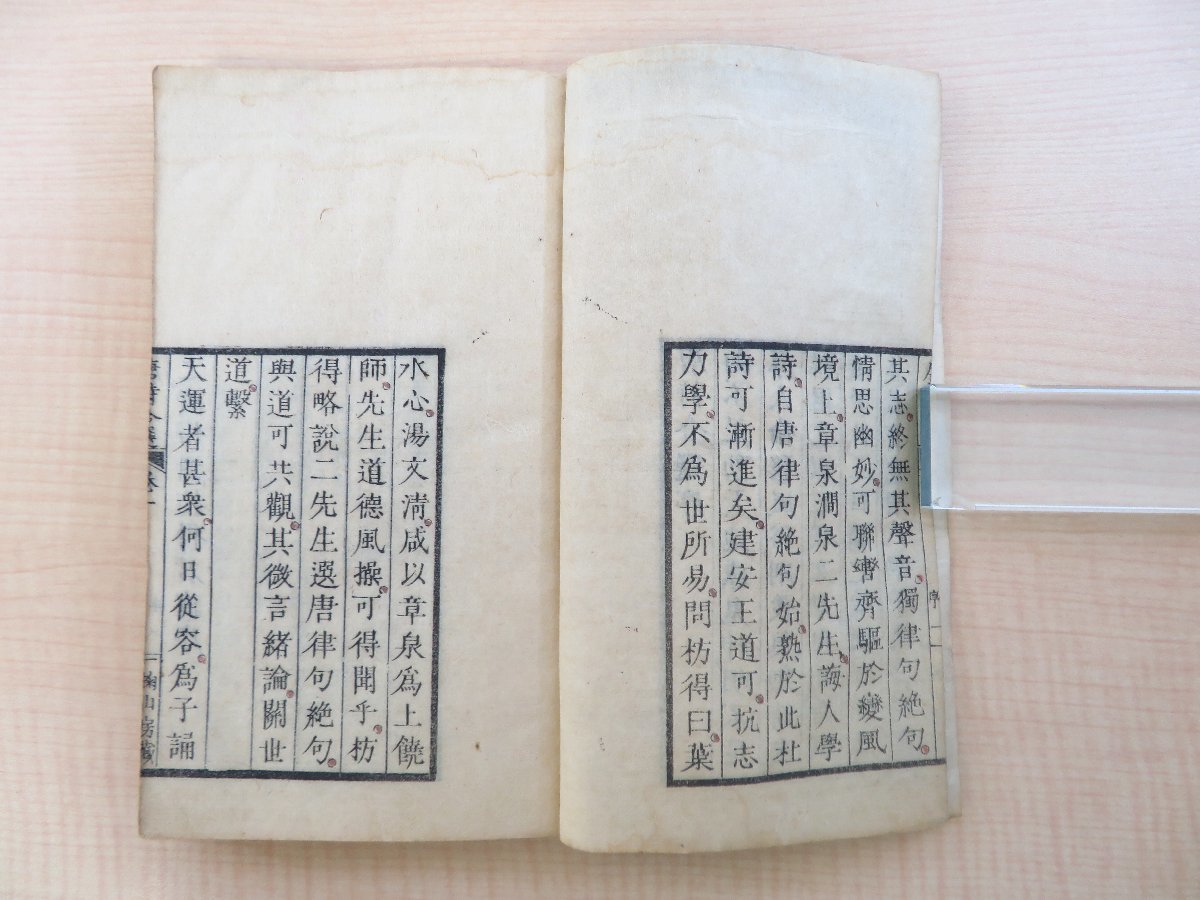 序
其志終無其聲音獨律句絶句
情思幽妙可聯轡齊驅於變風
境上章泉澗泉二先生誨人學
詩自唐律句絶句始熟於此杜
詩可漸進矣建安王道可抗志
力學不為世所易問枋得曰葉
水心湯文清咸以章泉爲上饒
師先生道德風操可得聞乎枋
得略說二先生選唐律句絶句
與道可共觀其微言緒論關世
道繫
天運者甚衆何日從容爲子誦